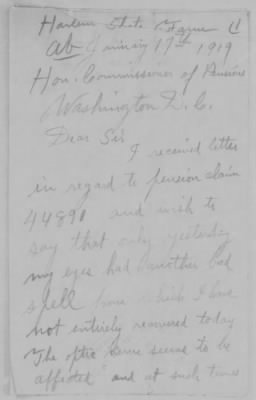 Harlem State Farm
ab January 17th 1919
Hon. Commissioner of Pensions
Washington D. C.
Dear Sir
I received letter
in regard to pension claim
44890 and wish to
say that only yesterday
my eyes had another bad
spell from which I have
not entirely recovered today
The optic nerve seems to be
affected and at such times